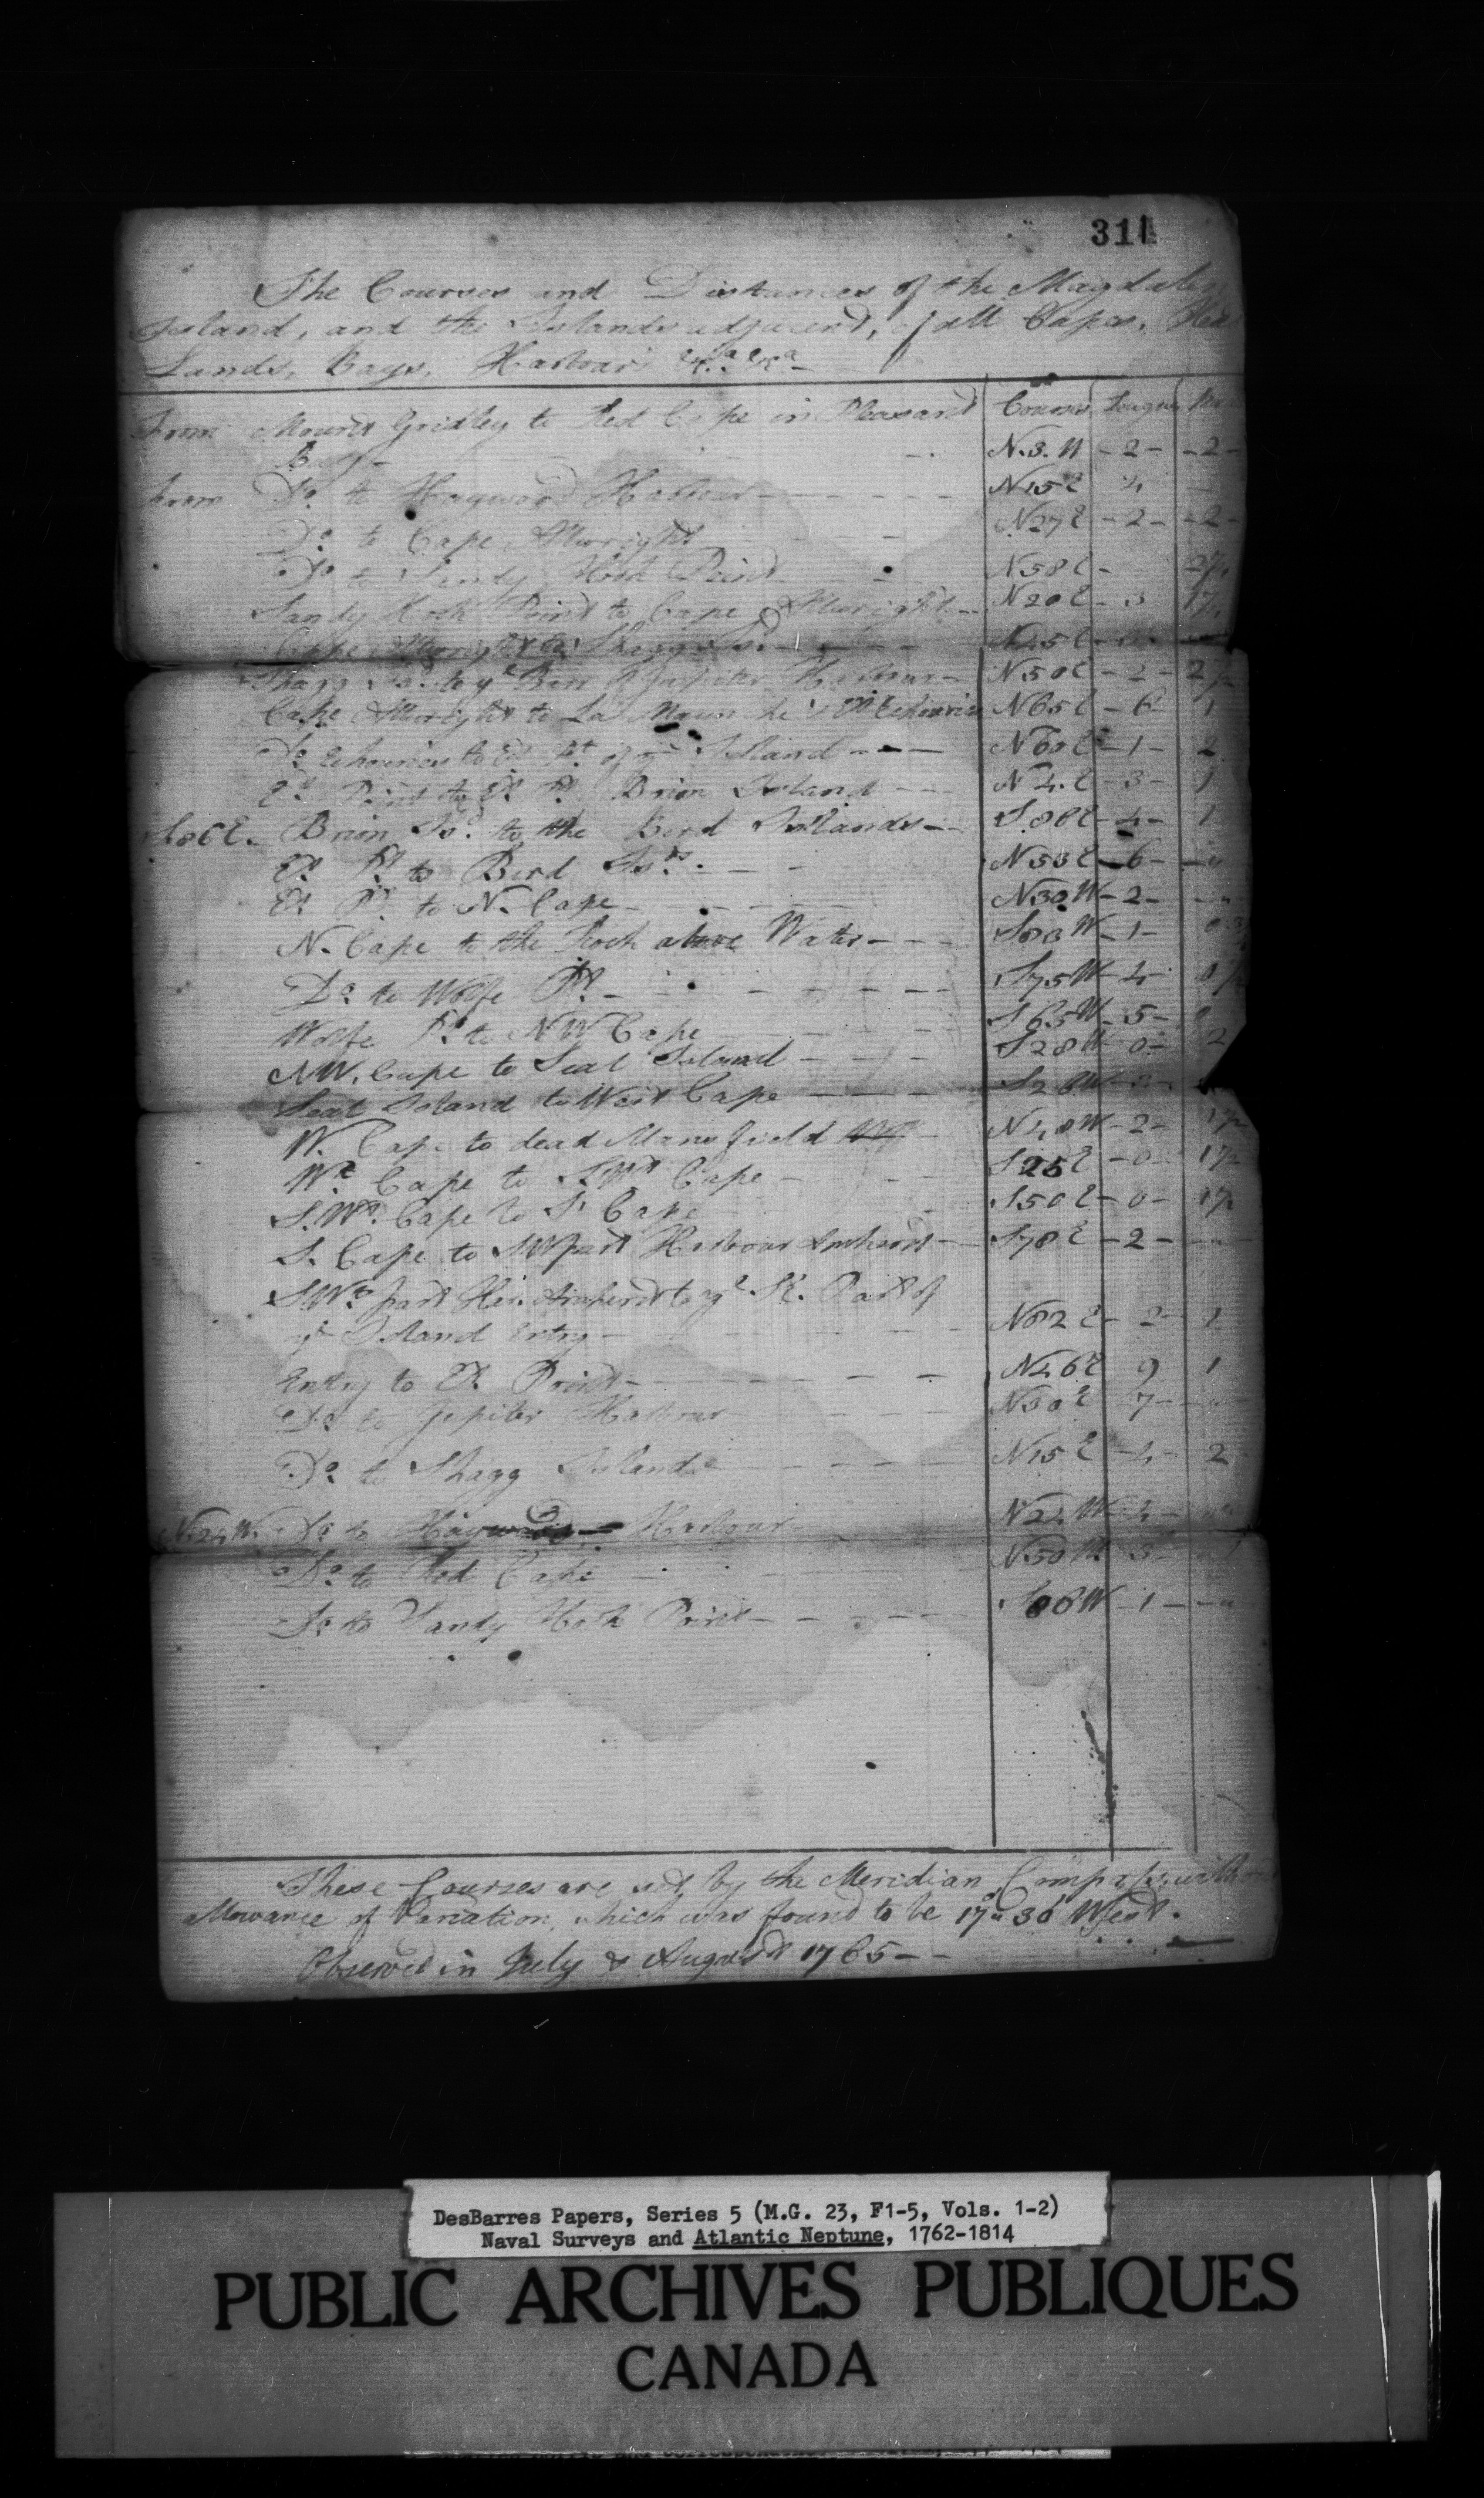 311
The Courses and Distances of the Magdalen
Island, and the Islands adjacent, of all Capes, Head
Lands, Bays, Harbours &c.a &c.a
From Mount Gridley to Red Cape in Pleasant Courses Leagues
Bay - N.3.W - 2 - - 2 -
from Do. to Haywood Harbour - N15E 4
Do. to Cape Allwright N27E - 2 - - 2 -
Do. to Sandy Hook Point N58E - 2½
Sandy Hook Point to Cape Allwright N20E - 3 1½
Cape Allwright to Shagg Isd. N45E
Shagg Isd. to ye Barr of Jupiter Harbour - N50E - 2 - 2½
Cape Allwright to La N65E - 6 1
Do. to Et. Pt. of ye Island N60E - 1 - 2
Et. Point to Et. Pt. Brion Island N4.E - 3 - 1
S86E. Brion Isd. to the Bird Islands - S.86E - 4 - 1
Et. Pt. to Bird Isds. N53E - 6 - - "
Et. Pt. to N. Cape N30W - 2 - - "
N. Cape to the Rock above Water - S83W - 1 - 0
Do. to Wolfe Pt. S75W - 4 - 0½
Wolfe Pt. to NW Cape S65W - 5 -
NW. Cape to Seal Island S28W - 0 - 2
Seal Island to West Cape S28W
W. Cape to dead Mans field N48W - 2 - 1½
Wt. Cape to S.Wt. Cape S25E - 0 - 1½
S.Wt. Cape to S. Cape S50E - 0 - 1½
S. Cape to SW part Harbour Amherst - S78E - 2 - - "
S.Wt. part Har. Amherst to ye St. Part of
ye Island Entry - N82E - 2 - 1
Entry to Et. Point - N46E 9 1
Do. to Jupiter Harbour N30E - 7 - - "
Do. to Shagg Island N15E - 4 - 2
N.24W. Do. to Haywood Harbour N24W - 4 -
Do. to Red Cape N.50W. 5 -
Do. to Sandy Hook Point - S86W - 1 - - "
These Courses are set by the Meridian Compass, with
allowance of Variation, which was found to be 17° 30' West.
Observed in July & August 1765 - -
DesBarres Papers, Series 5 (M.G. 23, F1-5, Vols. 1-2)
Naval Surveys and Atlantic Neptune, 1762-1814
PUBLIC ARCHIVES PUBLIQUES
CANADA